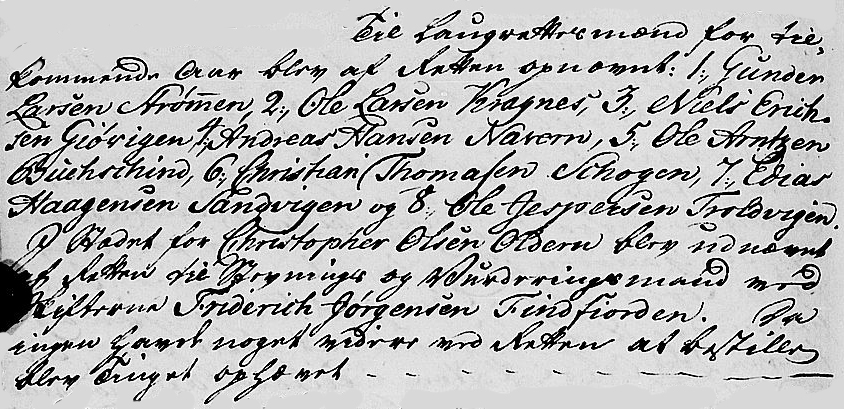 Til Laugrettesmænd for til-
kommende Aar blev af Retten opnævnt: 1., Gunder
Larsen Strømen, 2., Ole Larsen Kragnes, 3., Niels Erich-
sen Giövigen 4., Andreas Hansen Navern, 5., Ole Arntzen
Buchschind, 6., Christian Thomasen Schogen, 7., Edias
Haagensen Sandvigen og 8., Ole Jespersen Troldvigen.
I Stædet for Christopher Olsen Oldern blev udnævnt
af Retten til Stevnings og Vurderingsmand ved
Skifterne Friderich Jørgensen Findfiorden. Da
ingen havde noget videre ved Retten at bestille
blev Tinget ophævet